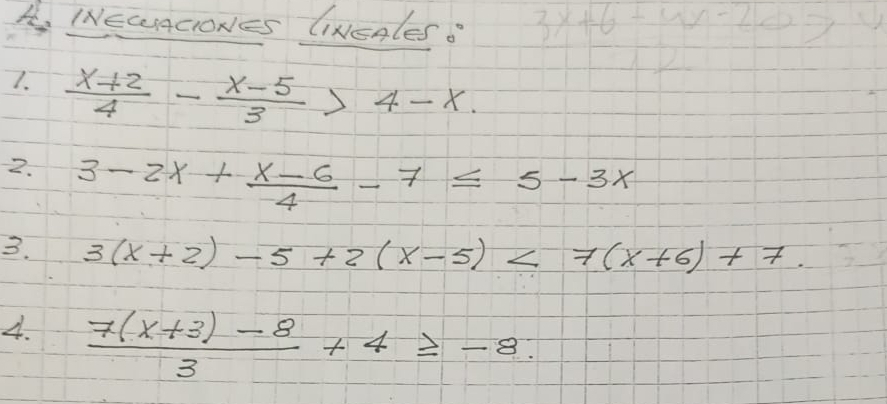 A. INECUACIONES LINEALES:
1. (x+2)/4 - (x-5)/3 > 4-x.
2. 3-2x + (x-6)/4 - 7 ≤ 5-3x
3. 3(x+2) -5 +2(x-5) < 7(x+6) + 7.
4. (7(x+3) -8)/3 + 4 ≥ -8.